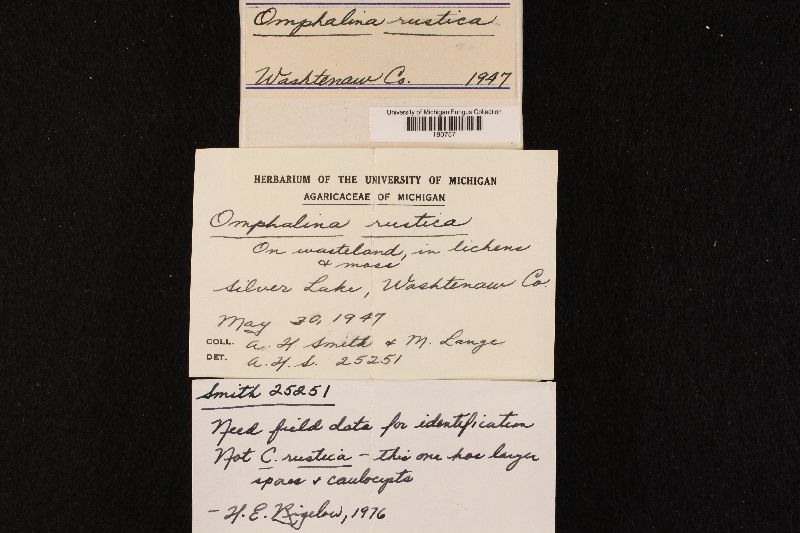 Omphalina rustica
Washtenaw Co. 1947
University of Michigan Fungus Collection
190757
HERBARIUM OF THE UNIVERSITY OF MICHIGAN
AGARICACEAE OF MICHIGAN
Omphalina rustica
On wasteland, in lichens
& moss
Silver Lake, Washtenaw Co.
May 30, 1947
COLL. A. H Smith & M. Lange
DET. A. H. S. 25251
Smith 25251
Need field data for identification
Not C. rustica - this one has larger
spores & caulocysts
- H. E. Bigelow, 1976